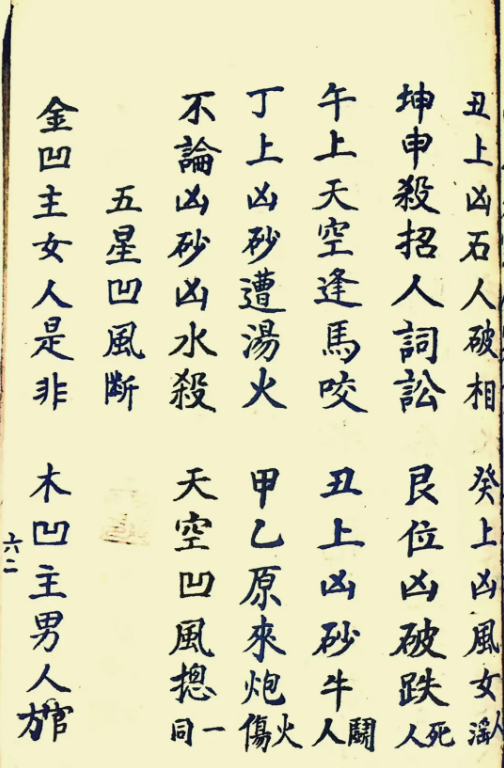 丑上凶石人破相　癸上凶風女人滛
坤申殺招人詞訟　艮位凶破跌死人
午上天空逢馬咬　丑上凶砂牛鬪人
丁上凶砂遭湯火　甲乙原來炮火傷
不論凶砂凶水殺　天空凹風摠一同
五星凹風斷
金凹主女人是非　木凹主男人官方
六二